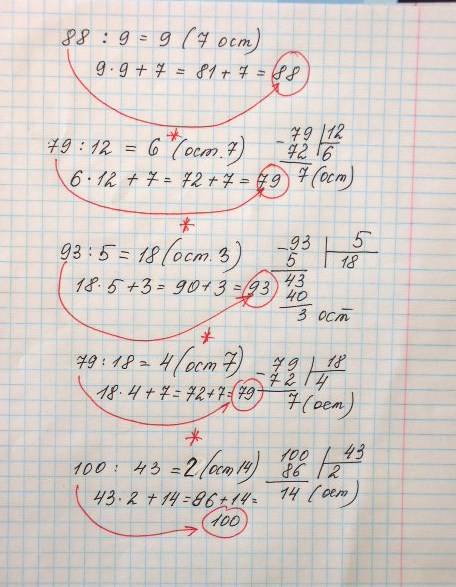 88 : 9 = 9 (7 ост)
9·9 + 7 = 81 + 7 = 88
*
79 : 12 = 6 (ост. 7)
6·12 + 7 = 72 + 7 = 79
-79 |12
72 | 6
7 (ост)
*
93 : 5 = 18 (ост. 3)
18·5 + 3 = 90 + 3 = 93
-93 | 5
5 | 18
43
40
3 ост
*
79 : 18 = 4 (ост 7)
18·4 + 7 = 72 + 7 = 79
-79 | 18
72 | 4
7 (ост)
*
100 : 43 = 2 (ост 14)
43·2 + 14 = 86 + 14 =
100
100 | 43
86 | 2
14 (ост)